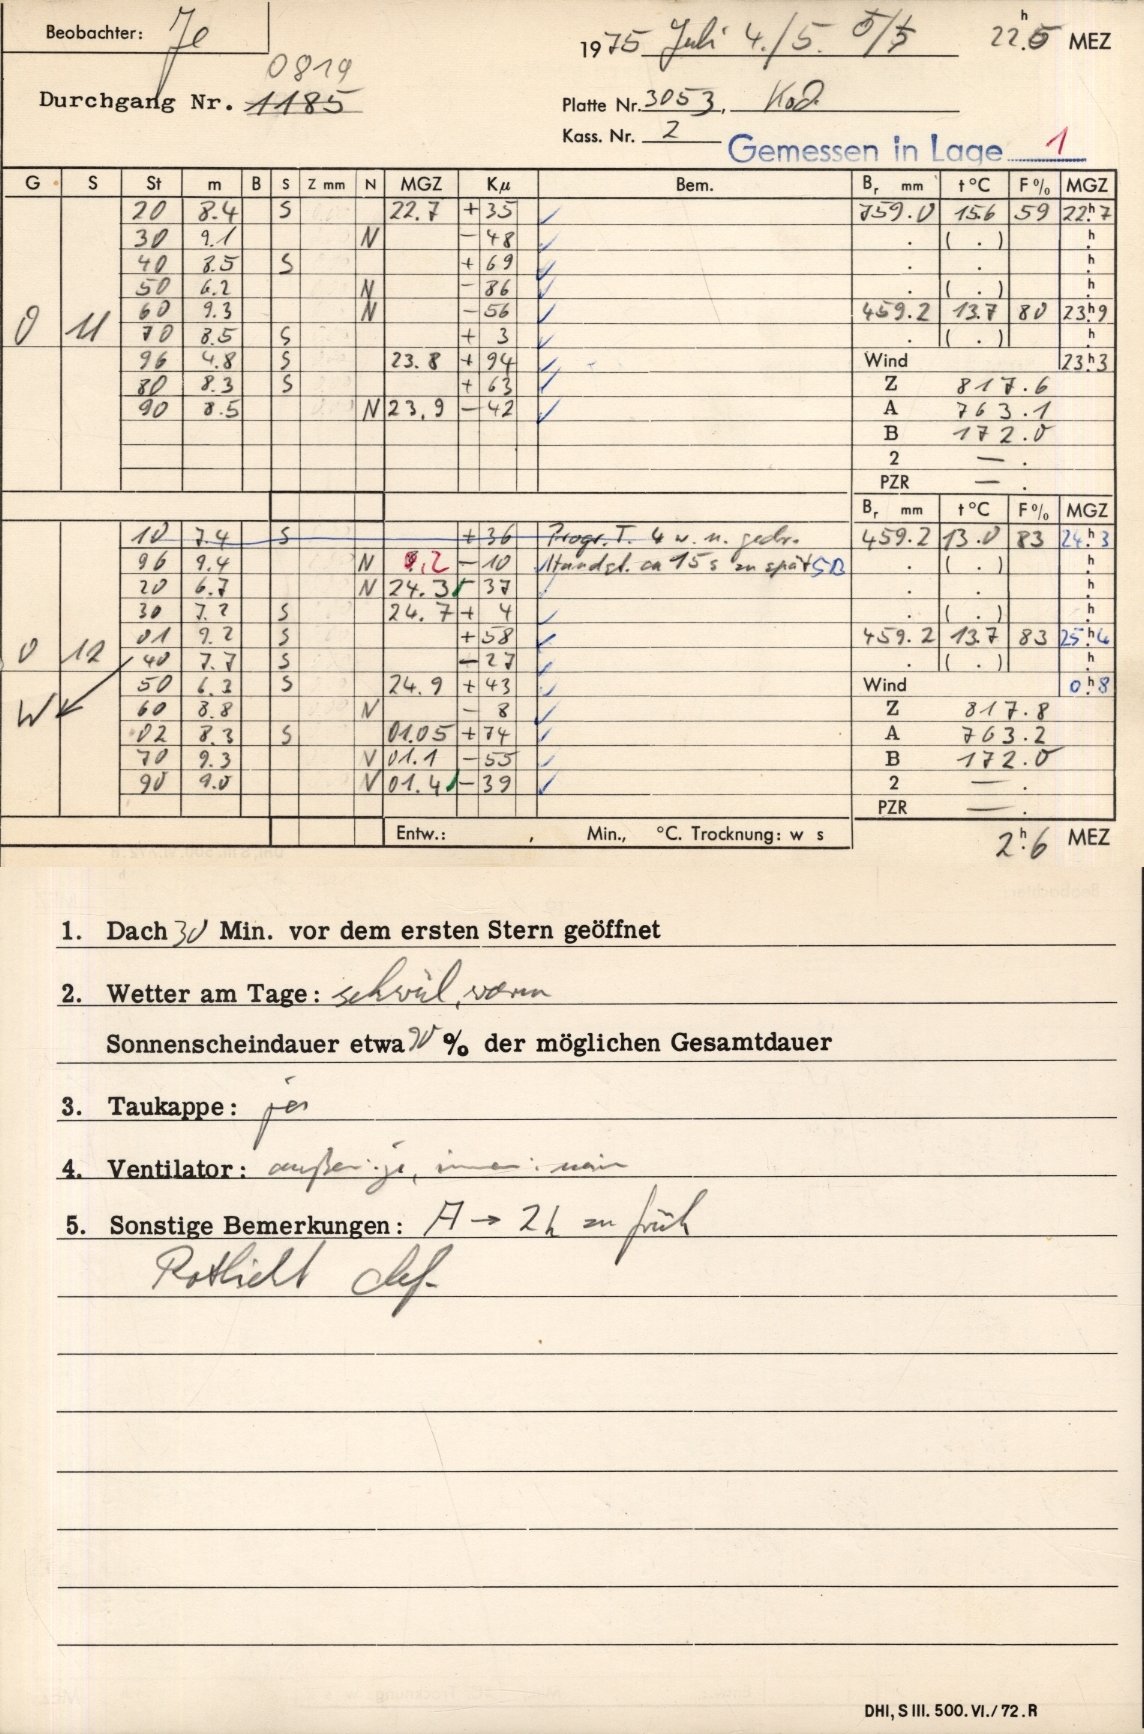 Beobachter: Je
1975 Juli 4./5. 5/5 22h.5 MEZ
0819
Durchgang Nr. 1185
Platte Nr. 3053, Kod.
Kass. Nr. 2
Gemessen in Lage 1
G S St m B S Z mm N MGZ Kμ Bem. Br mm t °C F% MGZ
20 8.4 S 22.7 +35 759.0 15.6 59 22h.7
30 9.1 N -48 . ( . ) h.
40 8.5 S +69 . . h.
50 6.2 N -86 . ( . ) h.
60 9.3 N -56 459.2 13.7 80 23h.9
0 11 70 8.5 S + 3 . ( . ) h.
96 4.8 S 23.8 +94 Wind 23h.3
80 8.3 S +63 Z 817.6
90 8.5 N 23.9 -42 A 763.1
B 172.0
2 — .
PZR — .
Br mm t °C F% MGZ
10 7.4 S +36 Progr. T. 4 w. n. gedr. 459.2 13.0 83 24h.3
96 9.4 N 9.2 -10 Handst. ca 15 s zu spät SB . ( . ) h.
20 6.7 N 24.3 37 . . h.
30 7.2 S 24.7 + 4 . ( . ) h.
01 9.2 S +58 459.2 13.7 83 25h.4
0 12 40 7.7 S -27 . ( . ) h.
50 6.3 S 24.9 +43 Wind 0h.8
W 60 8.8 N - 8 Z 817.8
02 8.3 S 01.05 +74 A 763.2
70 9.3 N 01.1 -55 B 172.0
90 9.0 N 01.4 -39 2 — .
PZR — .
Entw.: , Min., °C. Trocknung: w s
2h.6 MEZ
1. Dach 30 Min. vor dem ersten Stern geöffnet
2. Wetter am Tage: schwül, warm
Sonnenscheindauer etwa 90 % der möglichen Gesamtdauer
3. Taukappe: ja
4. Ventilator: außen: ja, innen: nein
5. Sonstige Bemerkungen: A → 2h zu früh
Rotlicht def.
DHI, S III. 500. VI./72. R